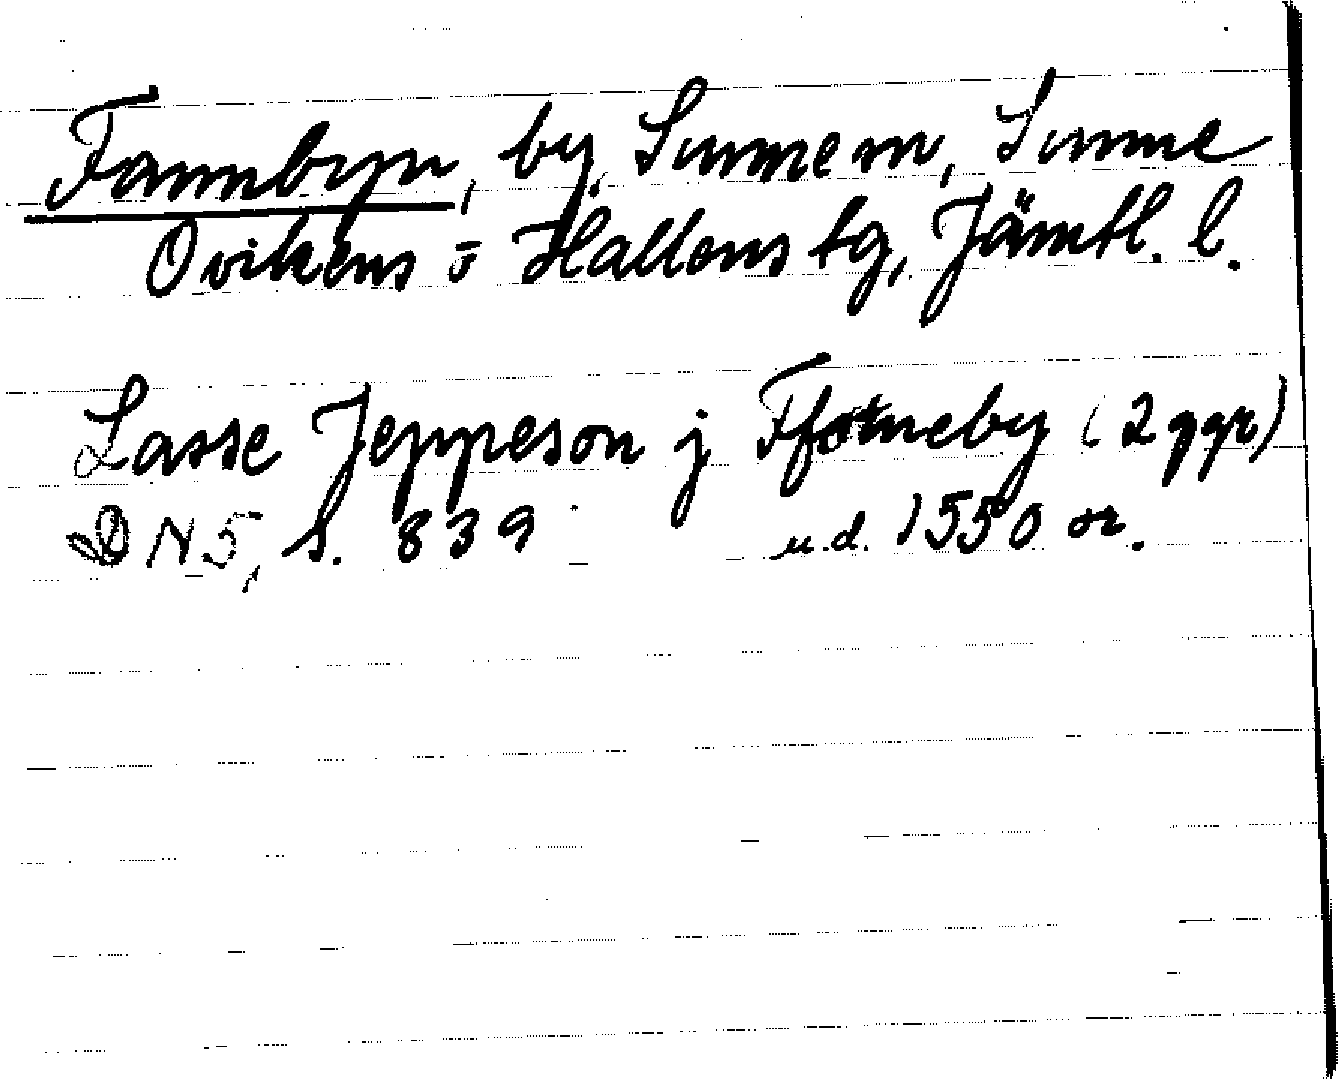 Fannbyn, by, Sunne sn, Sunne
Ovikens o Hallens tg, Jämtl. l.
Lasse Jeppeson j Ffatneby (2 ggr)
DN 5, s. 839 u.d. 1550 or.